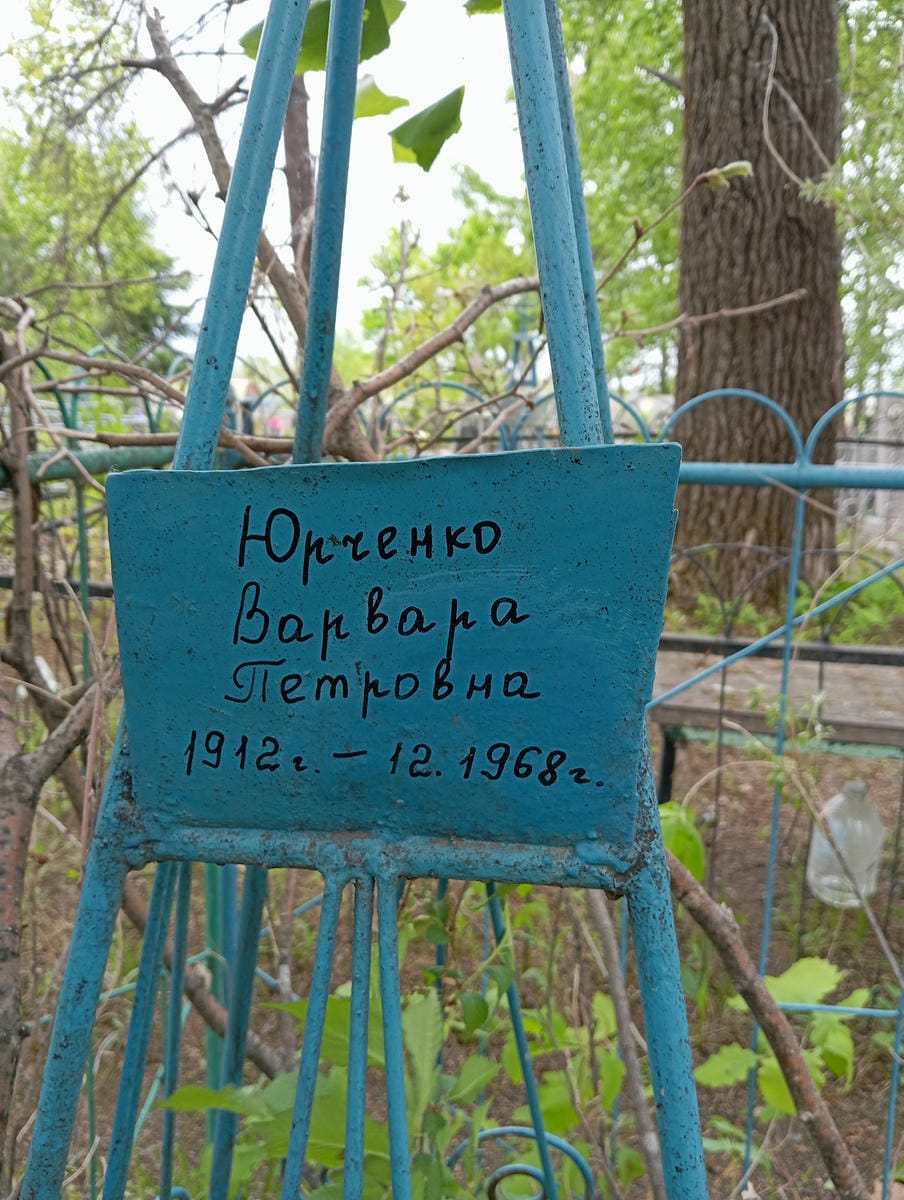 Юрченко
Варвара
Петровна
1912г. – 12.1968г.